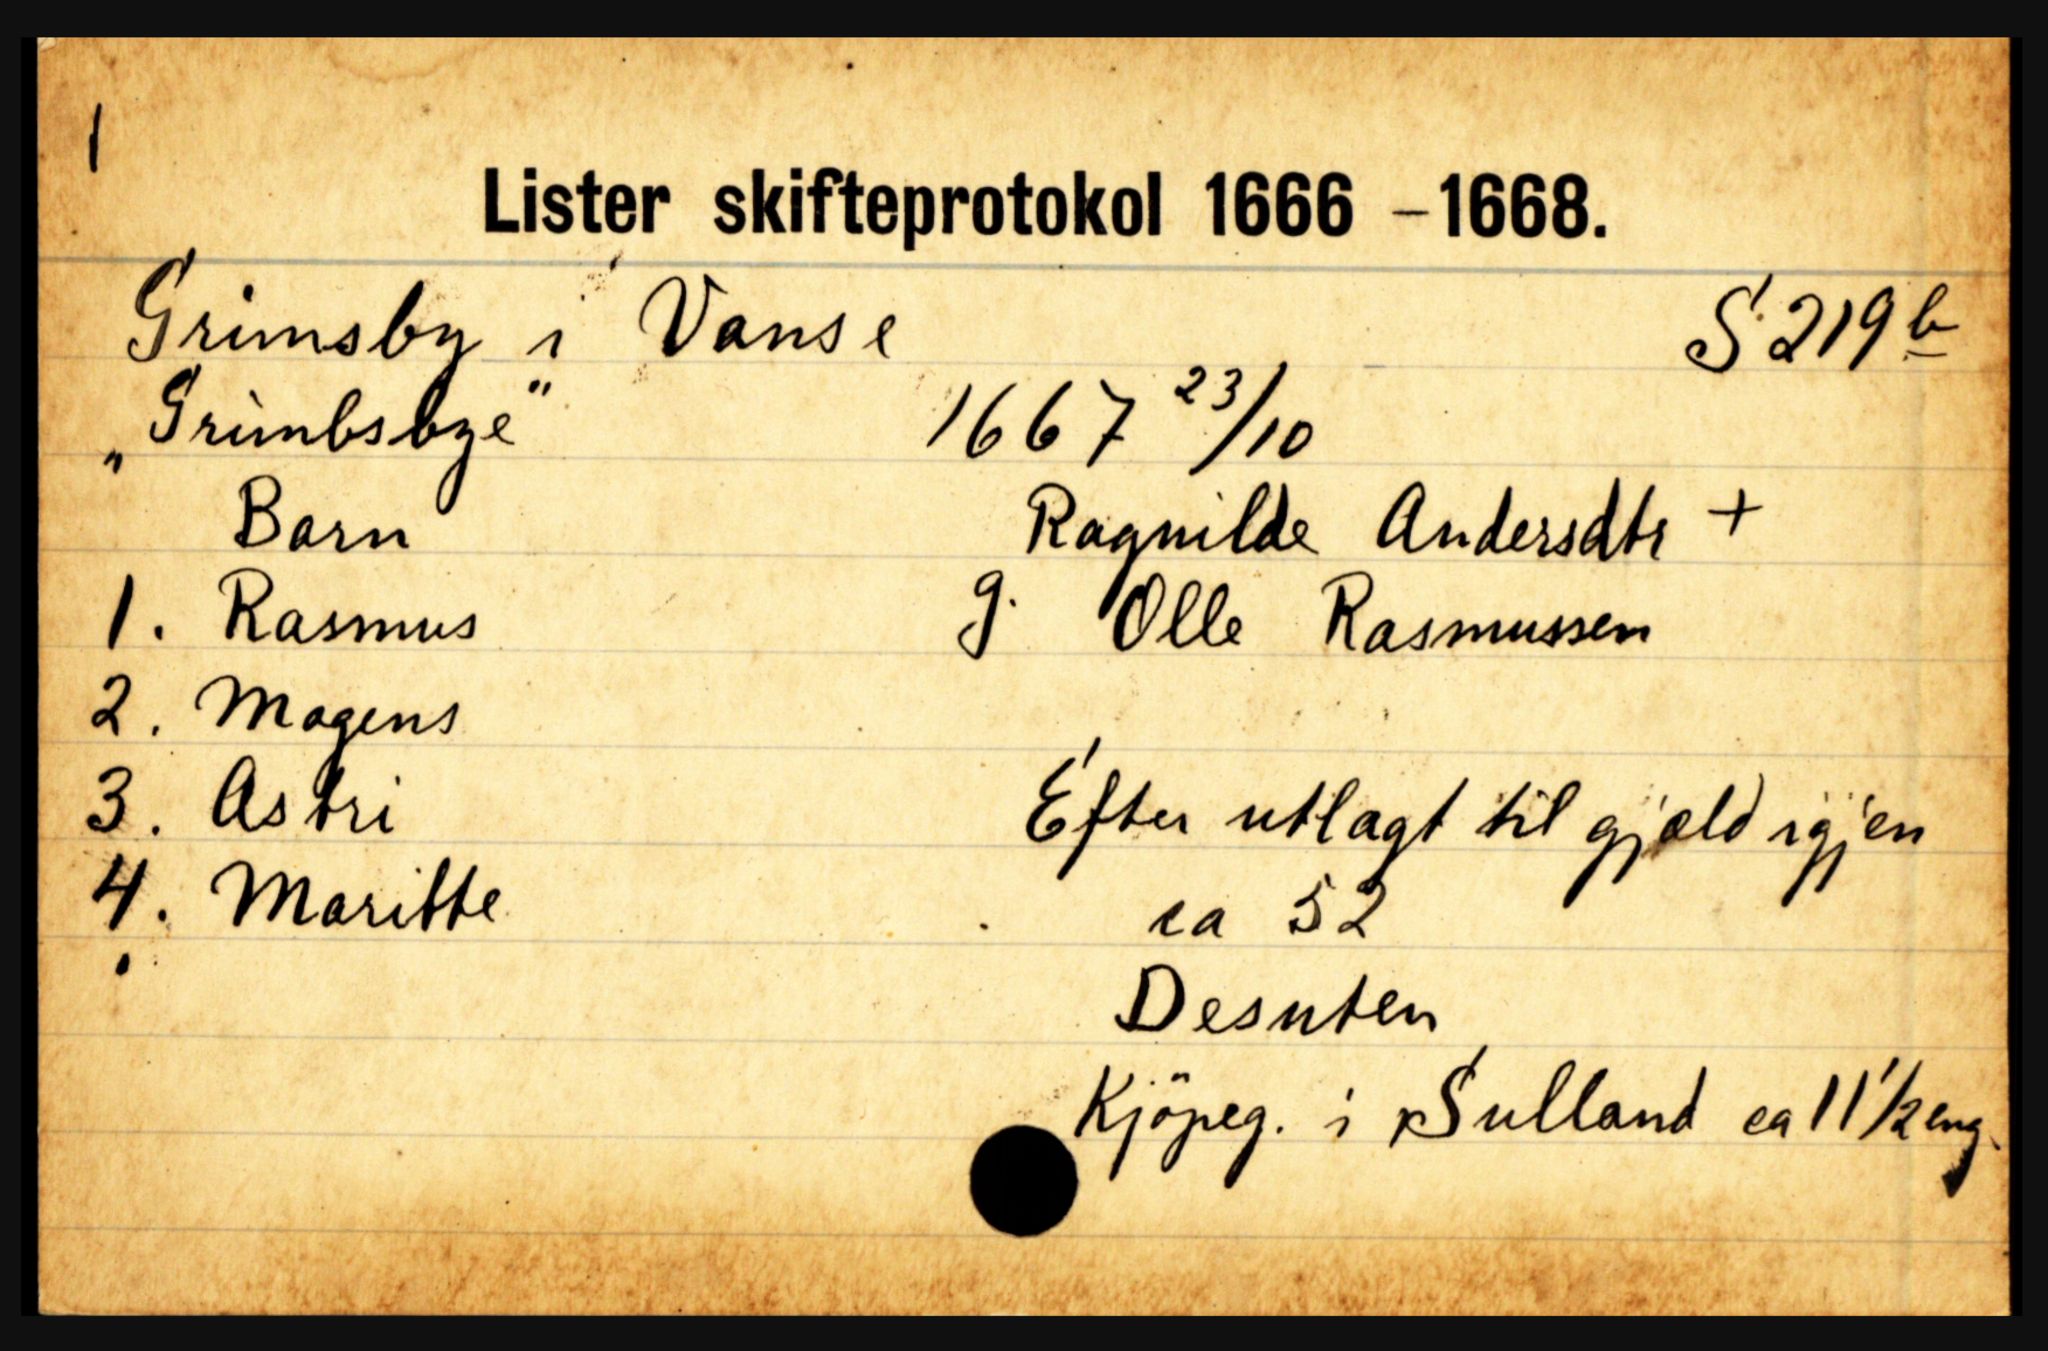 1
Lister skifteprotokol 1666 - 1668.
Grimsby i Vanse S. 219 b
„Grimbsbye" 1667 23/10
Barn Ragnilde Andersdtr +
1. Rasmus g. Olle Rasmussen
2. Mogens
3. Astri Efter utlagt til gjæld igjen
4. Maritte ca 52
Desuten
Kjöpeg. i Sulland ca 11 1/2 eng.